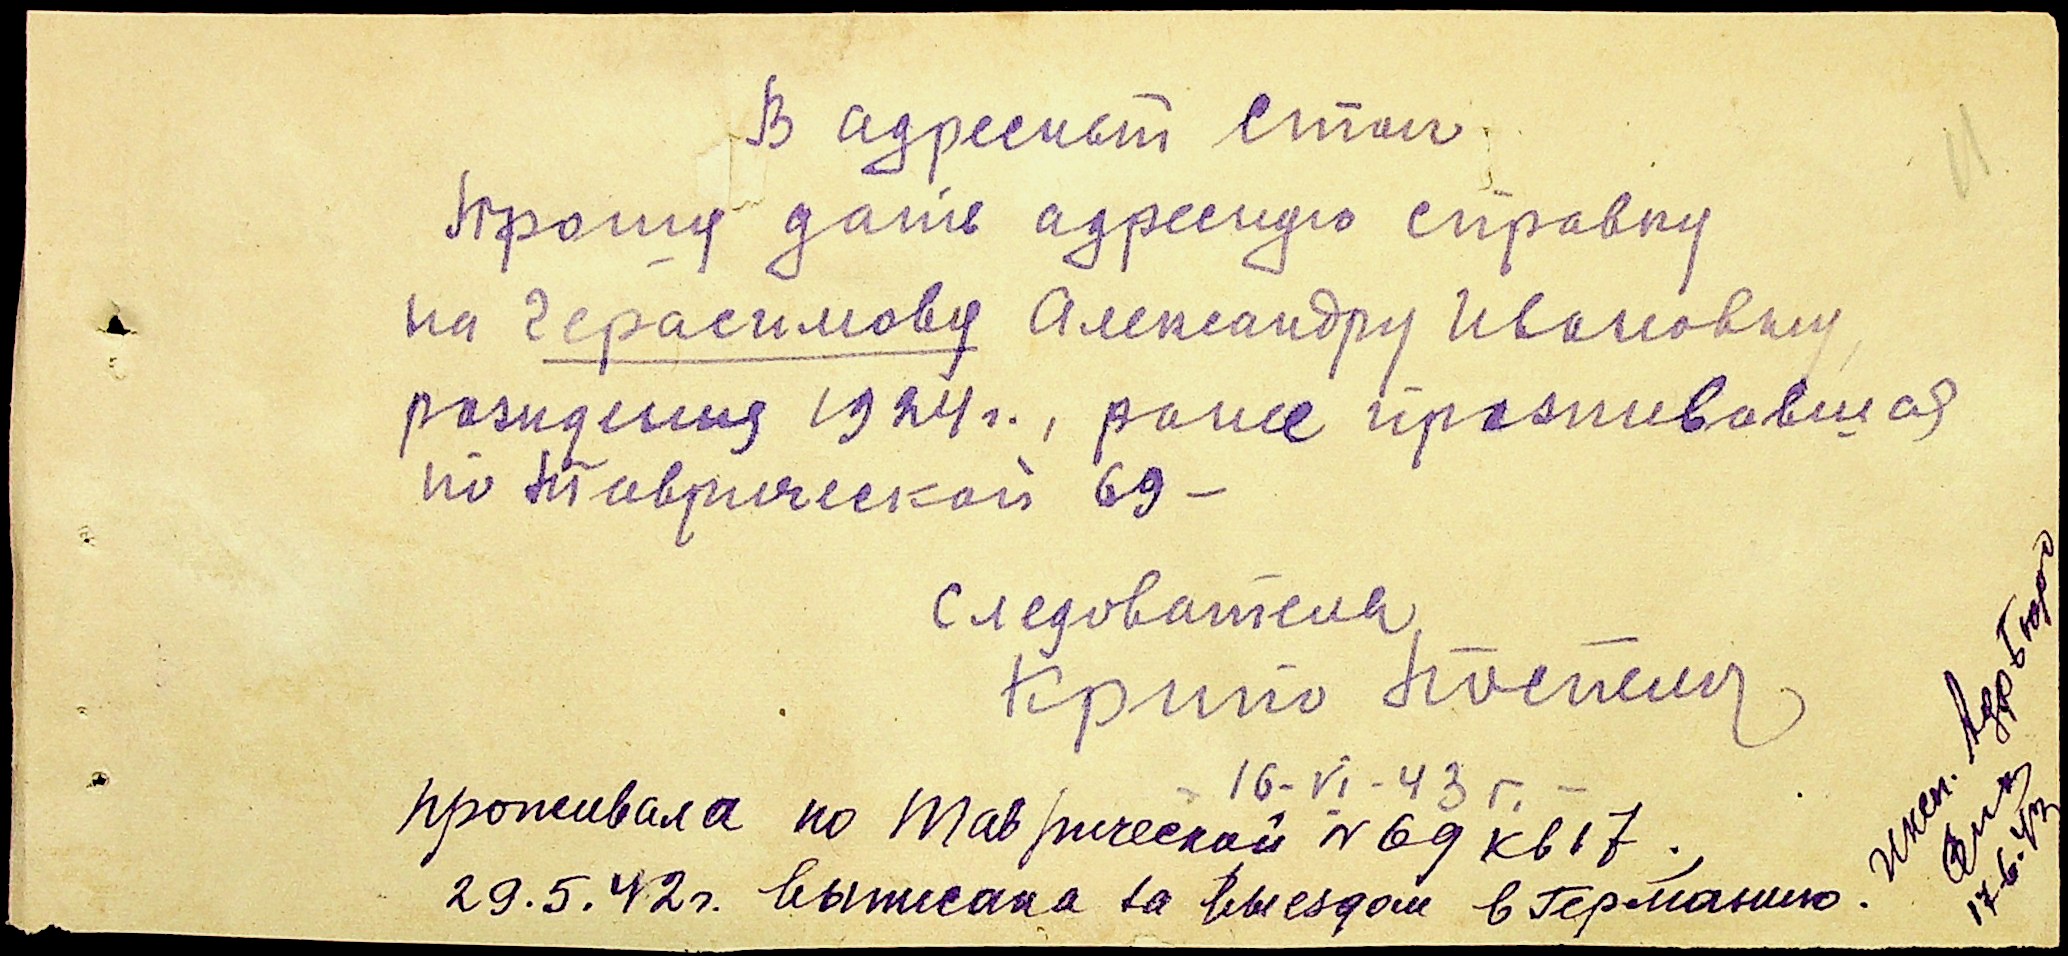 В адресный стол
Прошу дать адресную справку
на Герасимову Александру Ивановну,
рождения 1924 г., ранее проживавшая
по Таврической 69 –
Следователь
Крипо
16-VI-43 г. –
проживала по Таврической № 69 кв 17.
29.5.42 г. выписана за выездом в Германию.
Адр Бюро
17.6.43